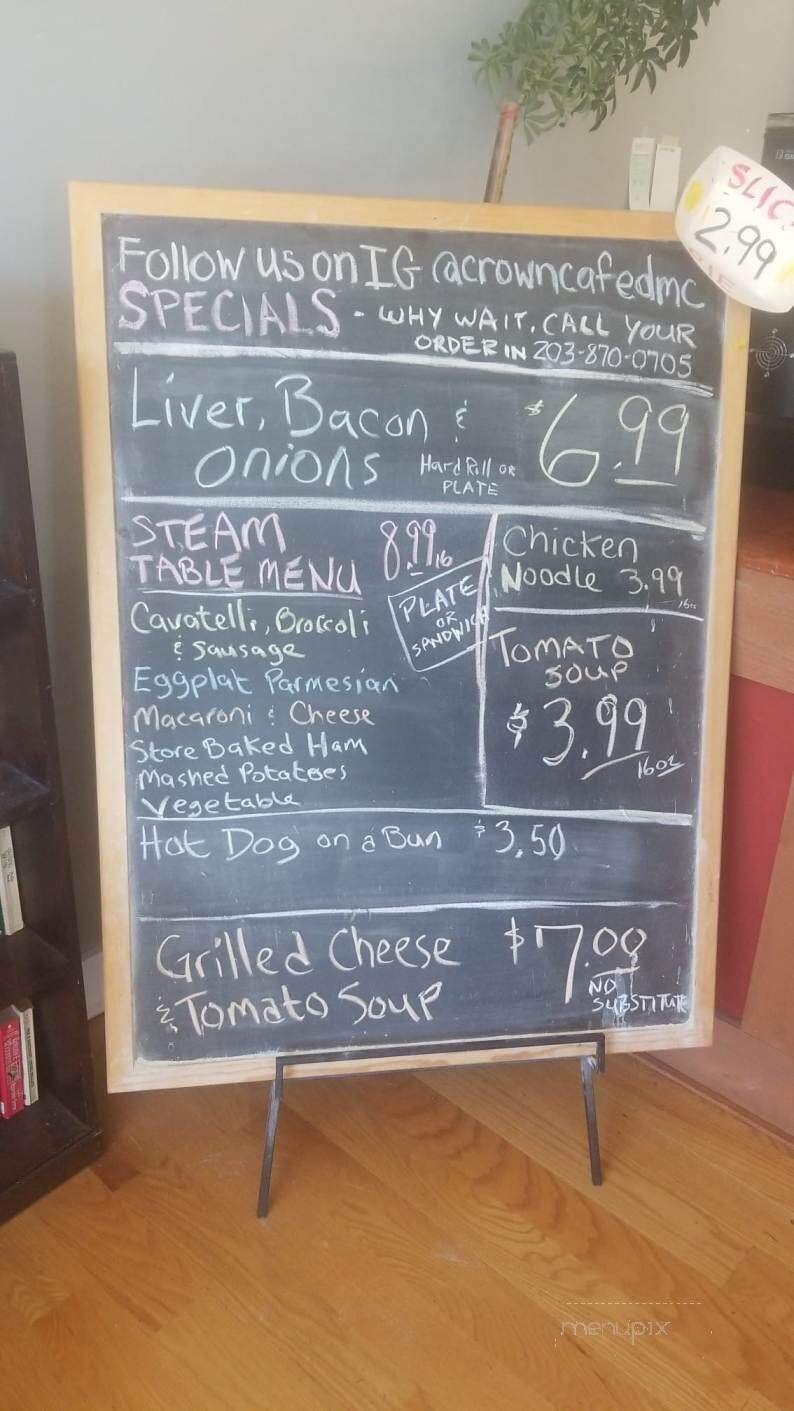 Follow us on IG @acrowncafedmc
SPECIALS - WHY WAIT. CALL YOUR
ORDER IN 203-870-0705
SLIC
2.99
Liver, Bacon &
onions
Hard Roll or
PLATE
$6.99
STEAM
TABLE MENU
8.99 lb
PLATE
OR
SANDWICH
Cavatelli, Broccoli
& Sausage
Eggplat Parmesian
Macaroni & Cheese
Store Baked Ham
Mashed Potatoes
Vegetable
Chicken
Noodle 3.99
16oz
TOMATO
SOUP
$3.99
16oz
Hot Dog on a Bun $3.50
Grilled Cheese
& Tomato Soup
$7.00
NO
SUBSTITUTE
menupix